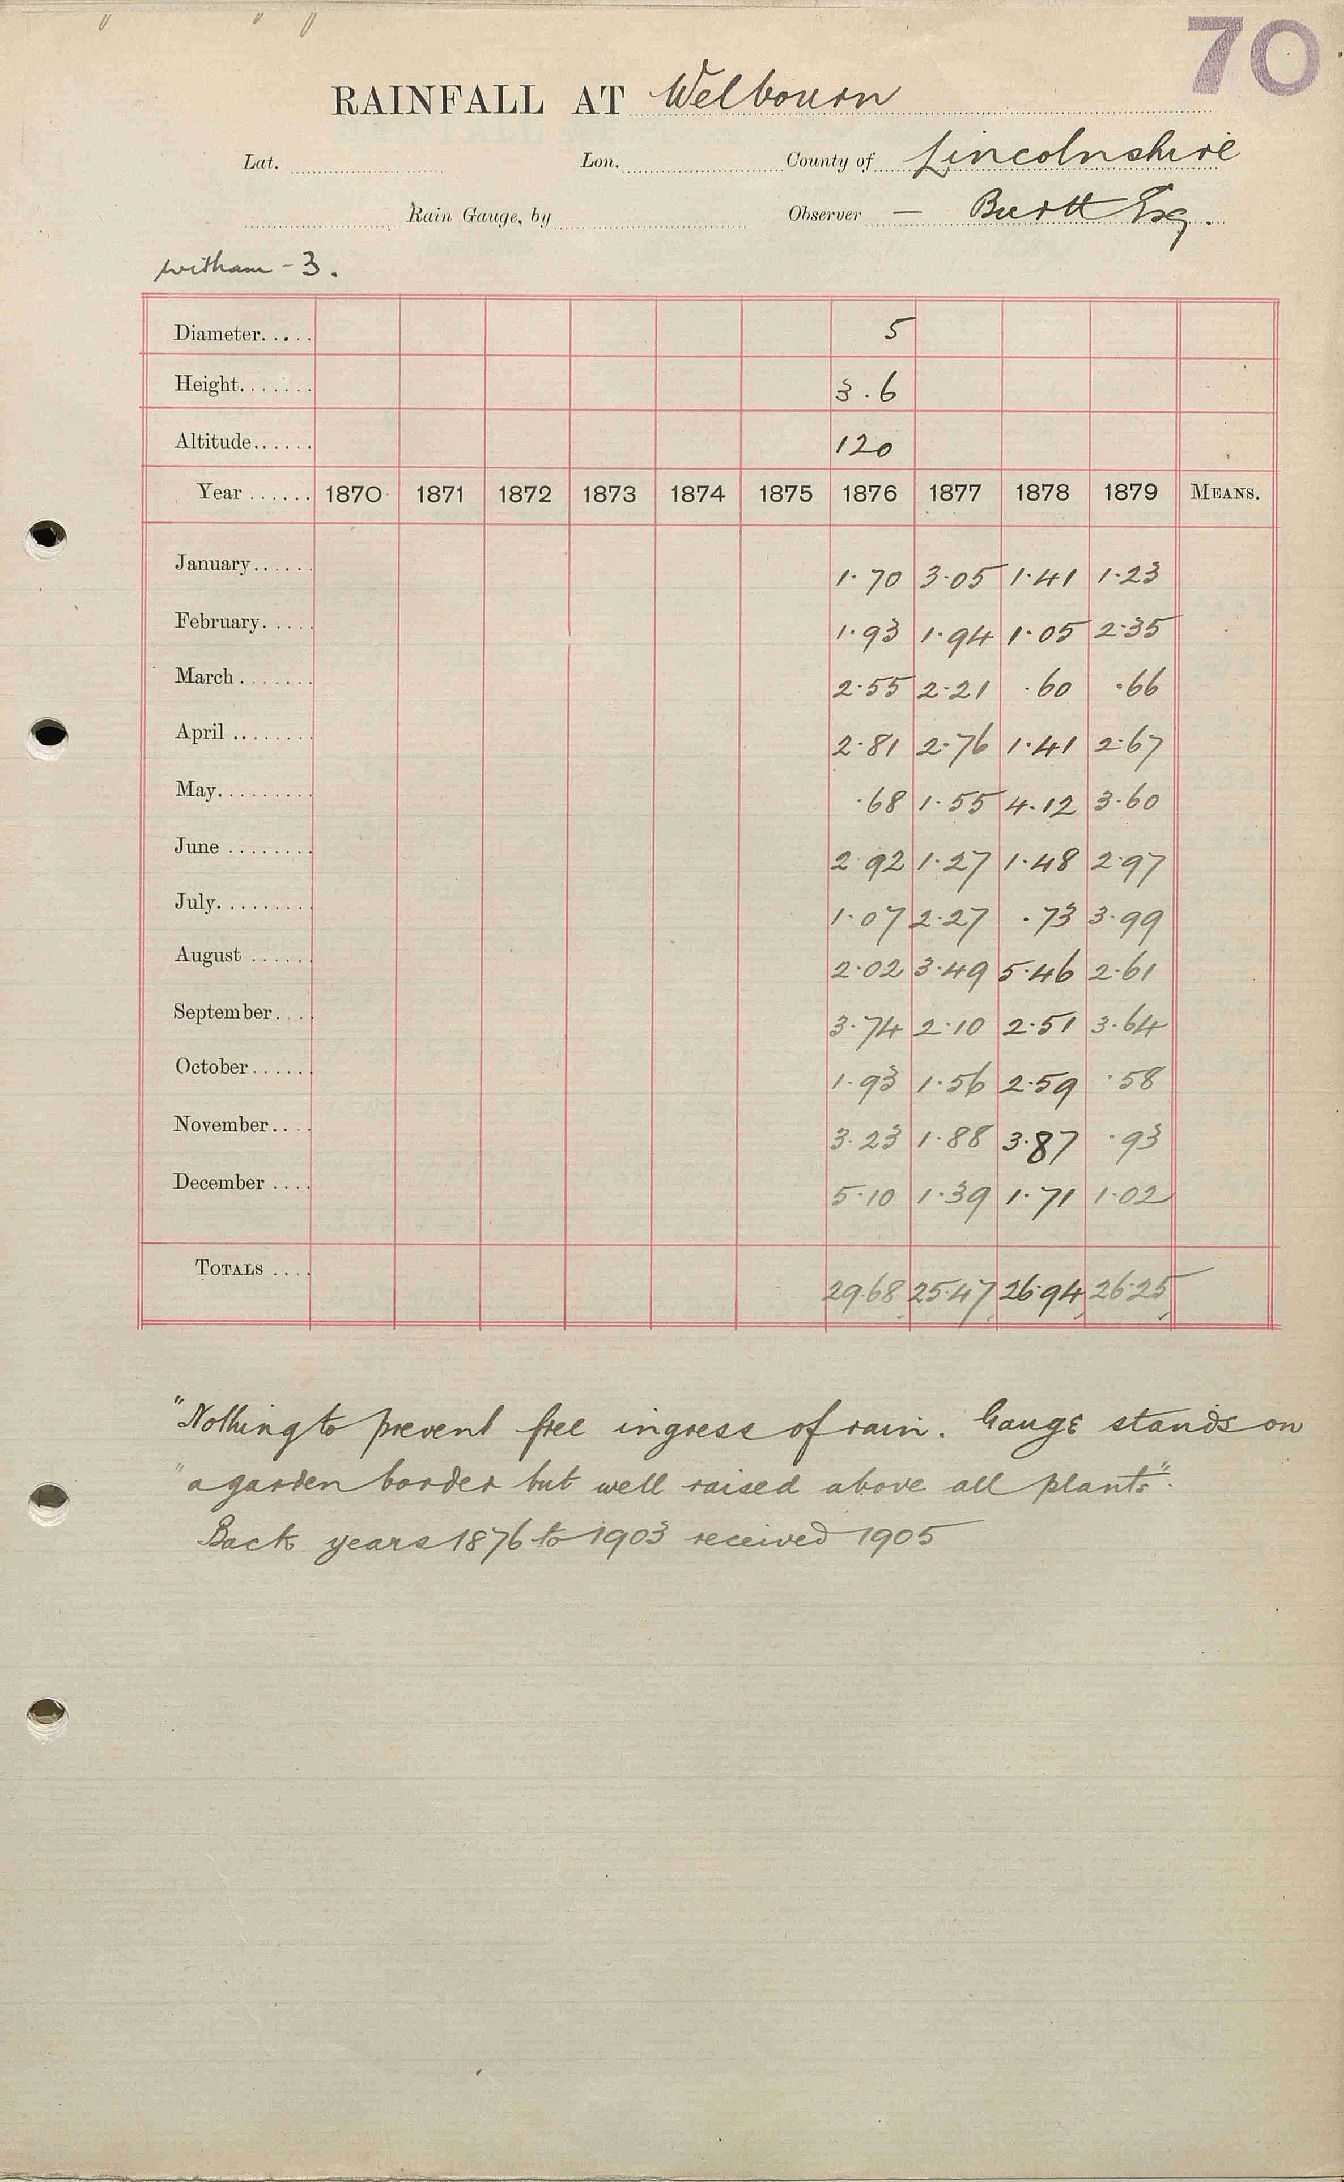 70
RAINFALL AT Welbourn
Lat. Lon. County of Lincolnshire
Rain Gauge, by Observer — Burtt Esq.
Witham - 3.
Diameter..... 5
Height....... 3.6
Altitude...... 120
Year ...... 1870 1871 1872 1873 1874 1875 1876 1877 1878 1879 MEANS.
January...... 1.70 3.05 1.41 1.23
February..... 1.93 1.94 1.05 2.35
March ....... 2.55 2.21 .60 .66
April ........ 2.81 2.76 1.41 2.67
May......... .68 1.55 4.12 3.60
June ........ 2.92 1.27 1.48 2.97
July......... 1.07 2.27 .73 3.99
August ...... 2.02 3.49 5.46 2.61
September.... 3.74 2.10 2.51 3.64
October...... 1.93 1.56 2.59 .58
November.... 3.23 1.88 3.87 .93
December .... 5.10 1.39 1.71 1.02
TOTALS .... 29.68 25.47 26.94 26.25
"Nothing to prevent free ingress of rain. Gauge stands on
"a garden border but well raised above all plants".
Back years 1876 to 1903 received 1905